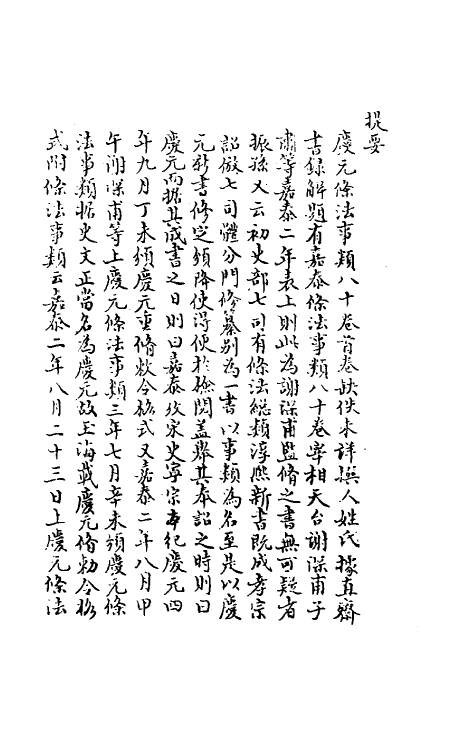 提要
慶元條法事類八十卷首卷缺佚未詳撰人姓氏據直齋
書録解題有嘉泰條法事類八十卷宰相天台謝深甫子
肅等嘉泰二年表上則此為謝深甫監脩之書無可疑者
振孫又云初吏部七司有條法総類淳熙新書既成孝宗
詔倣七司體分門修纂别為一書以事類為名至是以慶
元新書修定頒降使得便於檢閲盖舉其奉詔之時則曰
慶元而据其成書之日則曰嘉泰攷宋史寧宗本紀慶元四
年九月丁未頒慶元重脩敕令格式又嘉泰二年八月甲
午謝深甫等上慶元條法事類三年七月辛未頒慶元條
法事類据史文正當名為慶元故玉海載慶元脩勅令格
式附條法事類云嘉泰二年八月二十三日上慶元條法